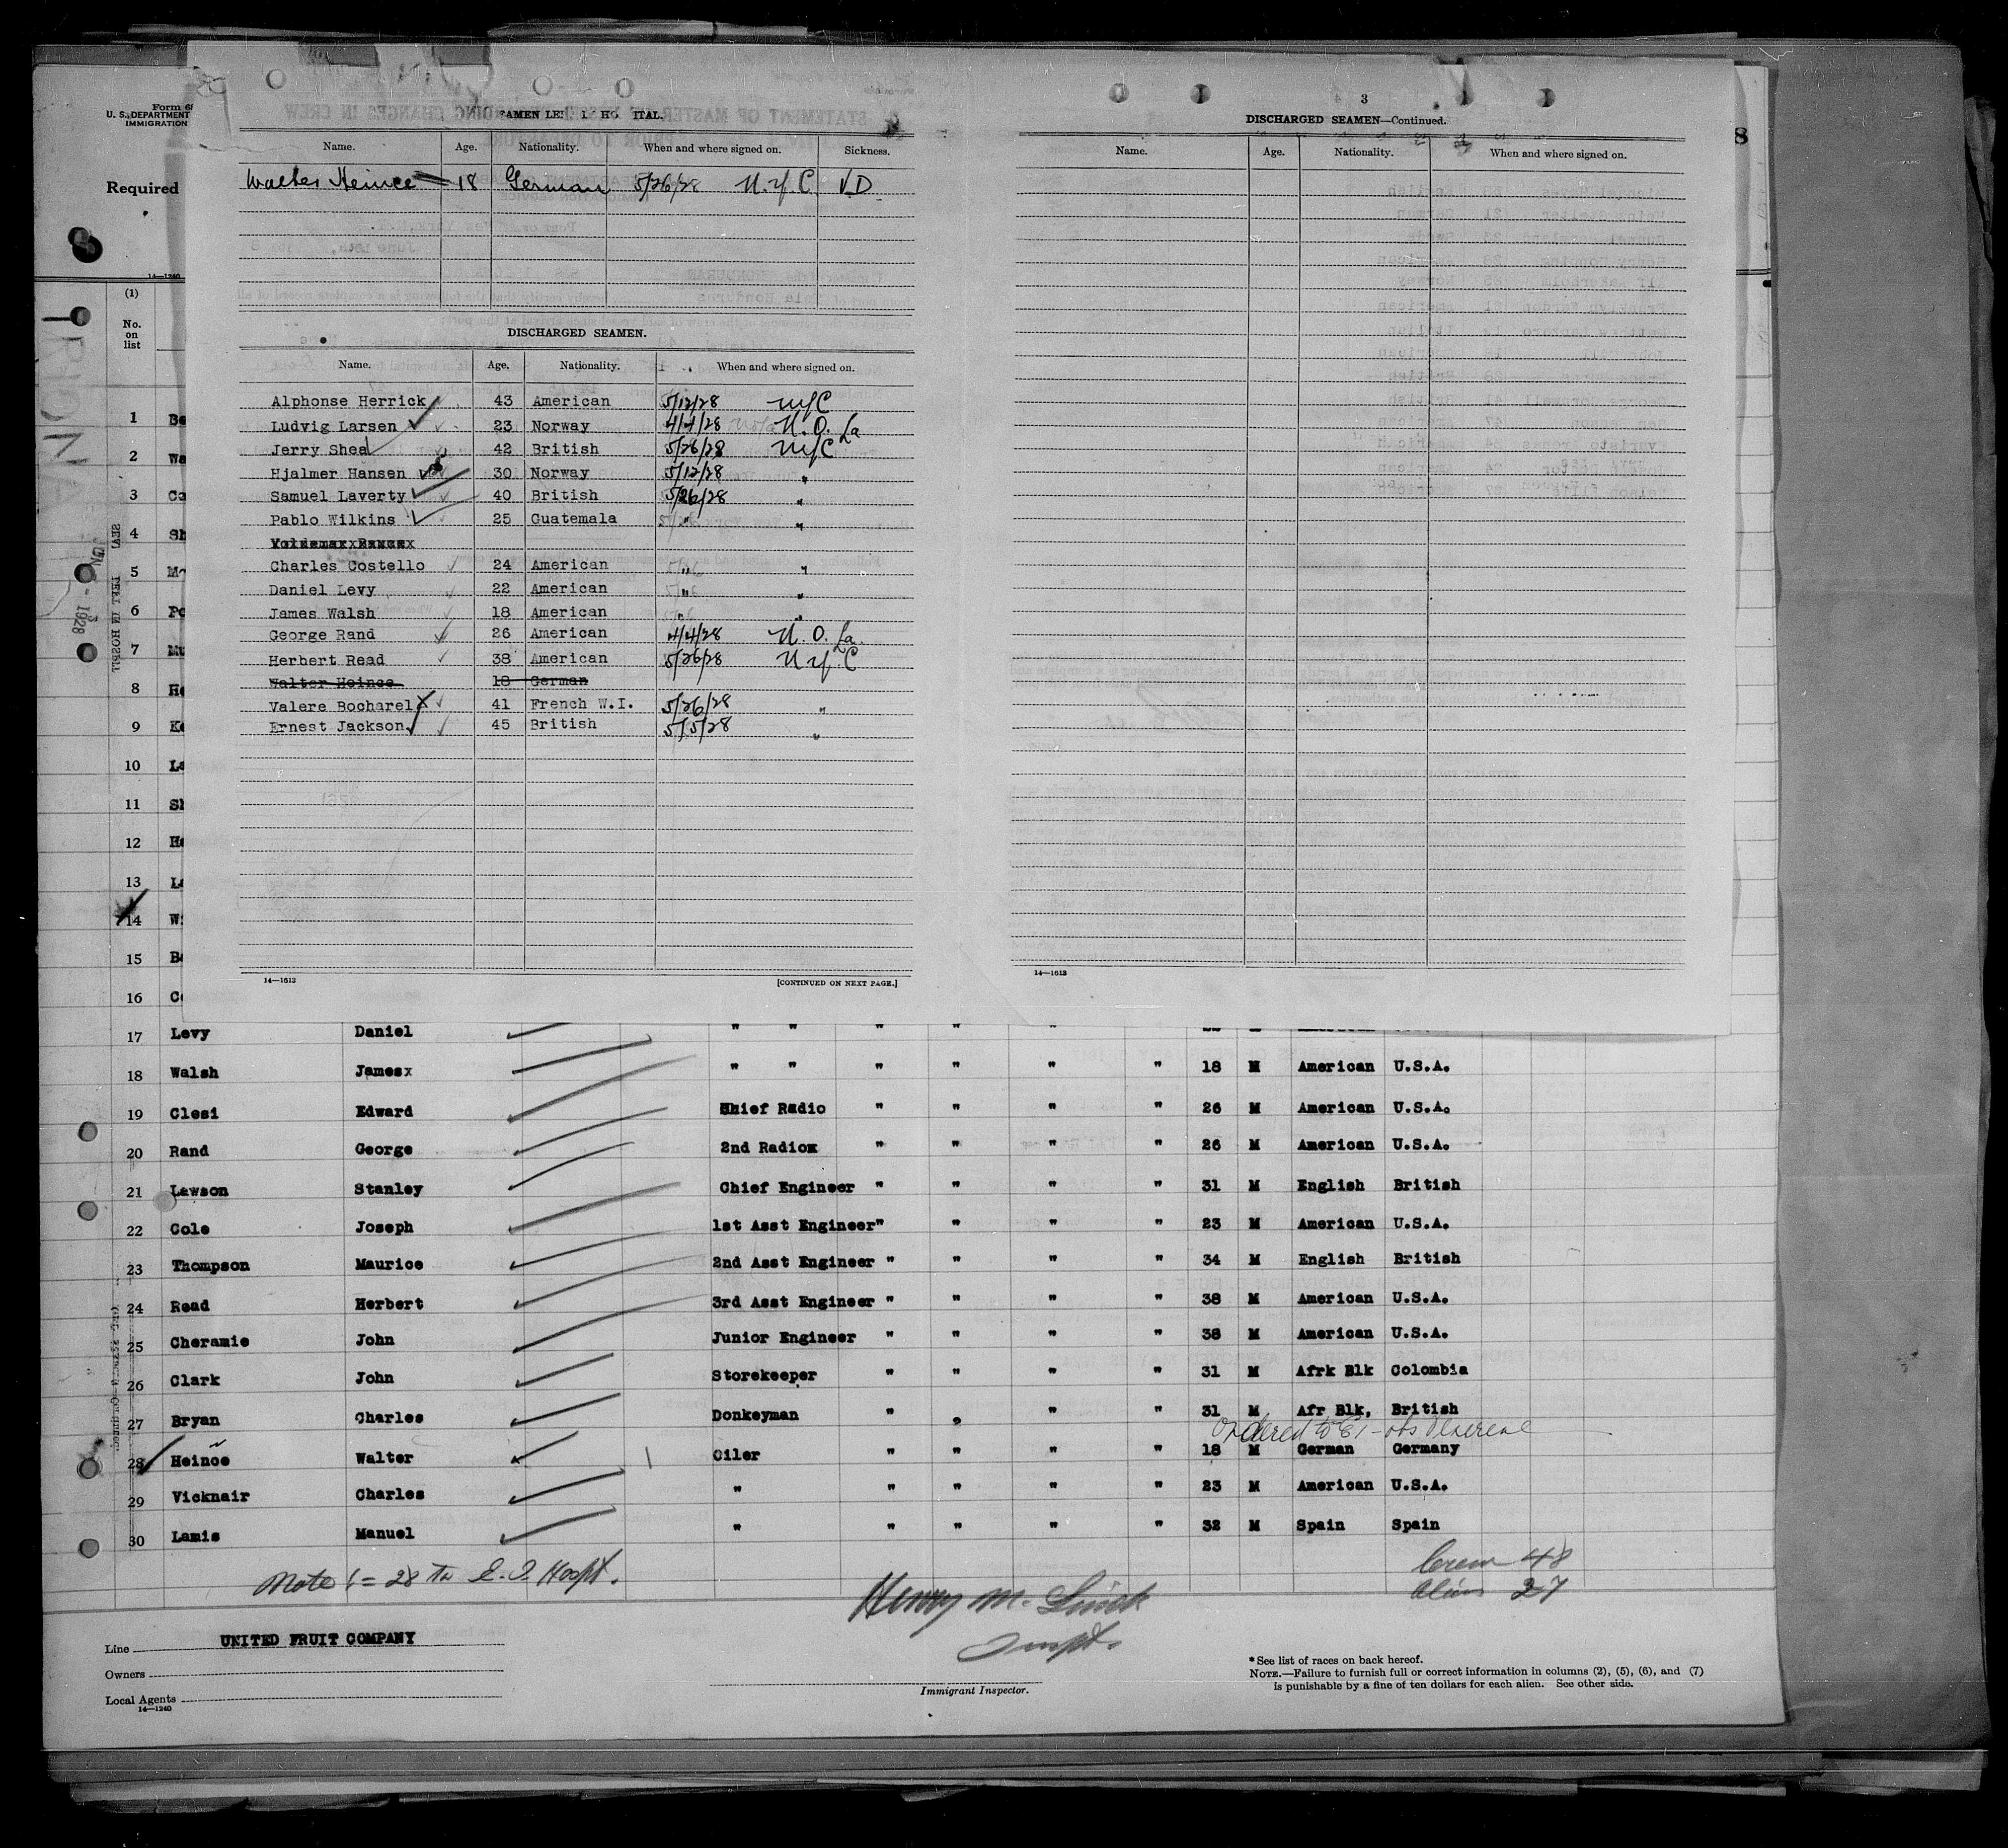 Form 68
U. S. DEPARTMENT
IMMIGRATION
Required
14—1240
SEAMEN LEFT IN HOSPITAL.
Name. Age. Nationality. When and where signed on. Sickness.
Walter Heince 18 German 5/26/28 N.Y.C. VD
DISCHARGED SEAMEN.
Name. Age. Nationality. When and where signed on.
Alphonse Herrick 43 American 5/12/28 NYC
Ludvig Larsen 23 Norway 4/4/28 N. O. La
Jerry Shea 42 British 5/26/28 NYC
Hjalmer Hansen 30 Norway 5/12/28 "
Samuel Laverty 40 British 5/26/28 "
Pablo Wilkins 25 Guatemala " "
Charles Costello 24 American " "
Daniel Levy 22 American " "
James Walsh 18 American " "
George Rand 26 American 4/4/28 N. O. La.
Herbert Read 38 American 5/26/28 N.Y.C
Walter Heince 18 German
Valere Bocharel 41 French W.I. 5/26/28 "
Ernest Jackson 45 British 5/15/28 "
14—1613 [CONTINUED ON NEXT PAGE.]
3
DISCHARGED SEAMEN—Continued.
Name. Age. Nationality. When and where signed on.
14—1613
8
(1)
No.
on
list
1 Be
2 Wa
3 Co
4 Sh
5 Mo
6 Po
7 Mu
8 He
9 Ke
10 La
11 Sh
12 He
13 Lo
14 Wi
15 Be
16 Co
17 Levy Daniel " " " " "
18 Walsh Jamesx " " " " " " 18 M American U.S.A.
19 Clesi Edward Chief Radio " " " " 26 M American U.S.A.
20 Rand George 2nd Radiox " " " " 26 M American U.S.A.
21 Lawson Stanley Chief Engineer " " " " 31 M English British
22 Cole Joseph 1st Asst Engineer " " " " 23 M American U.S.A.
23 Thompson Maurice 2nd Asst Engineer " " " " 34 M English British
24 Read Herbert 3rd Asst Engineer " " " " 38 M American U.S.A.
25 Cheramie John Junior Engineer " " " " 38 M American U.S.A.
26 Clark John Storekeeper " " " " 31 M Afrk Blk Colombia
27 Bryan Charles Donkeyman " " " " 31 M Afr Blk, British
Ordered to EI - obs Venereal
28 Heince Walter 1 Oiler " " " " 18 M German Germany
29 Vicknair Charles " " " " " 23 M American U.S.A.
30 Lamis Manuel " " " " " 32 M Spain Spain
Note 1 = 28 To E. I. Hospt.
Crew 48
Aliens 27
Henry M.
Inspt.
Line UNITED FRUIT COMPANY
Owners
Local Agents
14—1240
Immigrant Inspector.
* See list of races on back hereof.
NOTE.—Failure to furnish full or correct information in columns (2), (5), (6), and (7)
is punishable by a fine of ten dollars for each alien. See other side.